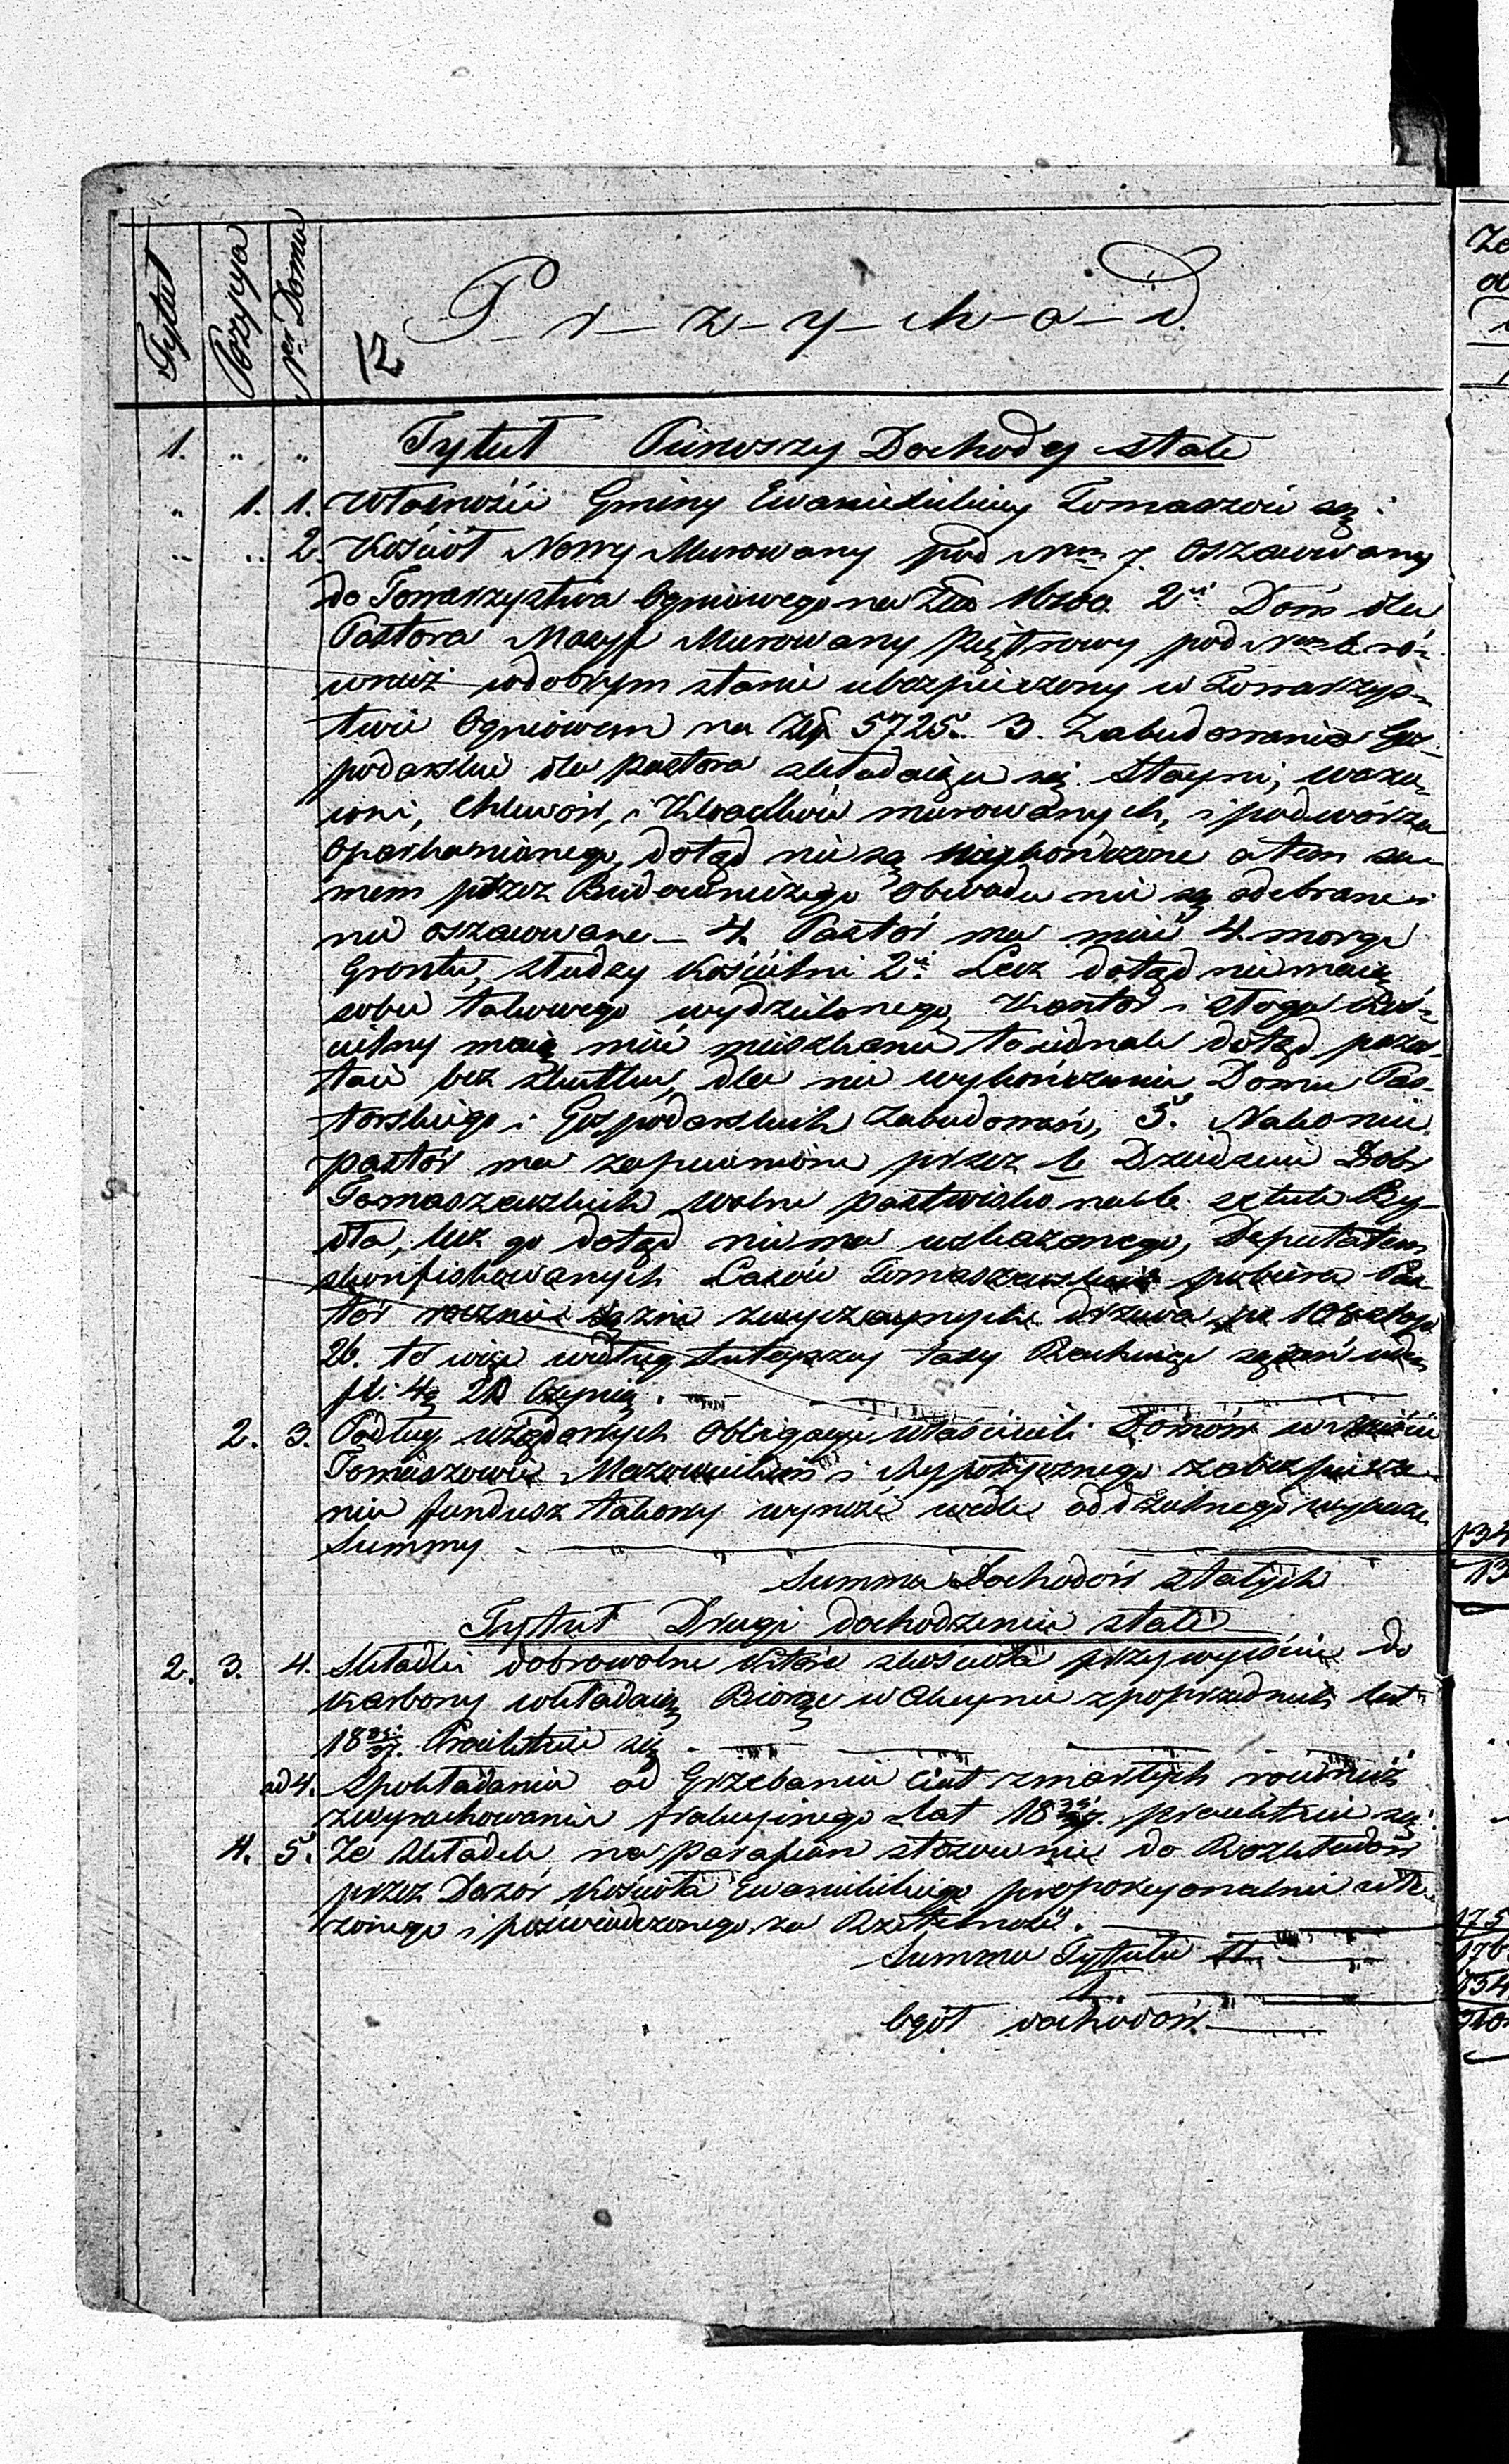 Tytuł Pozycya Ner Domu
P-r-z-y-ch-o-d.
12
1. " " Tytuł Pierwszy Dochody stałe
" 1. 1. Własnością Gminy Ewanielickiey Tomaszów są:
" " 2. Kościół Nowy Murowany pod Nrem 7. Oszacowany
do Towarzystwa Ogniowego na Złp 2. Dom dla
Pastora Masyf Murowany Piętrowy pod Nrem 6. ró-
wnież w dobrym stanie ubezpieczony w Towarzys-
twie Ogniowem na Złp 5725. 3. Zabudowania Gos-
podarskie dla pastora składaiące się Stayni, wozo-
wni, Chlewów, i murowanych, i podwórza
Oparkanionego, dotąd nie są wykończone a tem sa-
mem przez Budowniczego Obwodu nie są odebrane i
nie oszacowane — 4. Pastór ma mieć 4. morgi
Gruntu, Słudzy Kościelni 2. Lecz dotąd nie maią
sobie takowego wydzielonego, Kantór i sługa Koś-
cielny maią mieć mieszkanie to iednak dotąd pozos-
taie bez skutku, dla nie wykończenia Domu Pas-
torskiego i Gospodarskich Zabudowań, 5. Nakoniec
pastór ma zapewnione przez Dziedzica Dóbr
Tomaszewskich wolne pastwisko na sztuk By-
dła, lecz go dotąd nie ma wskazanego, Deputatem
skonfiskowanych Lasów Tomaszewskich pobiera Pas-
tór rocznie sążni zwyczaynych drzewa po 108 stop
26. to więc według tuteyszey taxy Rachuiąc sążeń
fl: 4 Czynią.
2. 3. Podług urzędowych Obligacyi właścicieli Domów w mieście
Tomaszowie Mazowieckim i hypotycznego zabezpiecze-
nia fundusz takowy wynosi wedle oddzielnego wykazu
Summy 134
Summa Dochodów stałych 13
Tytuł Drugi dochodzenie stałe
2. 3. 4. Składki dobrowolne które z kościoła przy wyiściu do
karbony wkładaią Biorąc w z poprzednich lat
18 35/37. się
ad 4. Spokładania od Grzebania Ciał zmarłych również
z wyrachowania frakcyinego lat 18 35/37. się
4. 5. Ze Składek na parafian stosownie do Rozkładów
przez Dozór Kościoła Ewanielickiego proporcyonalnie uło-
żonego i poświadczonego za Rzetelność. 175
Summa Tytułu II. 176
I. 134
Ogół dochodów 310